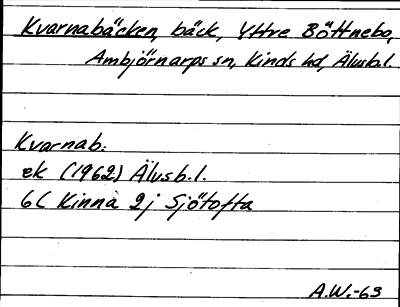 Kvarnabäcken, bäck, Yttre Böttnebo,
Ambjörnarps sn, Kinds hd, Älvsb.l.
Kvarnab.
ek (1962) Älvsb.l.
6C Kinna 2j Sjötofta
A.W.-63